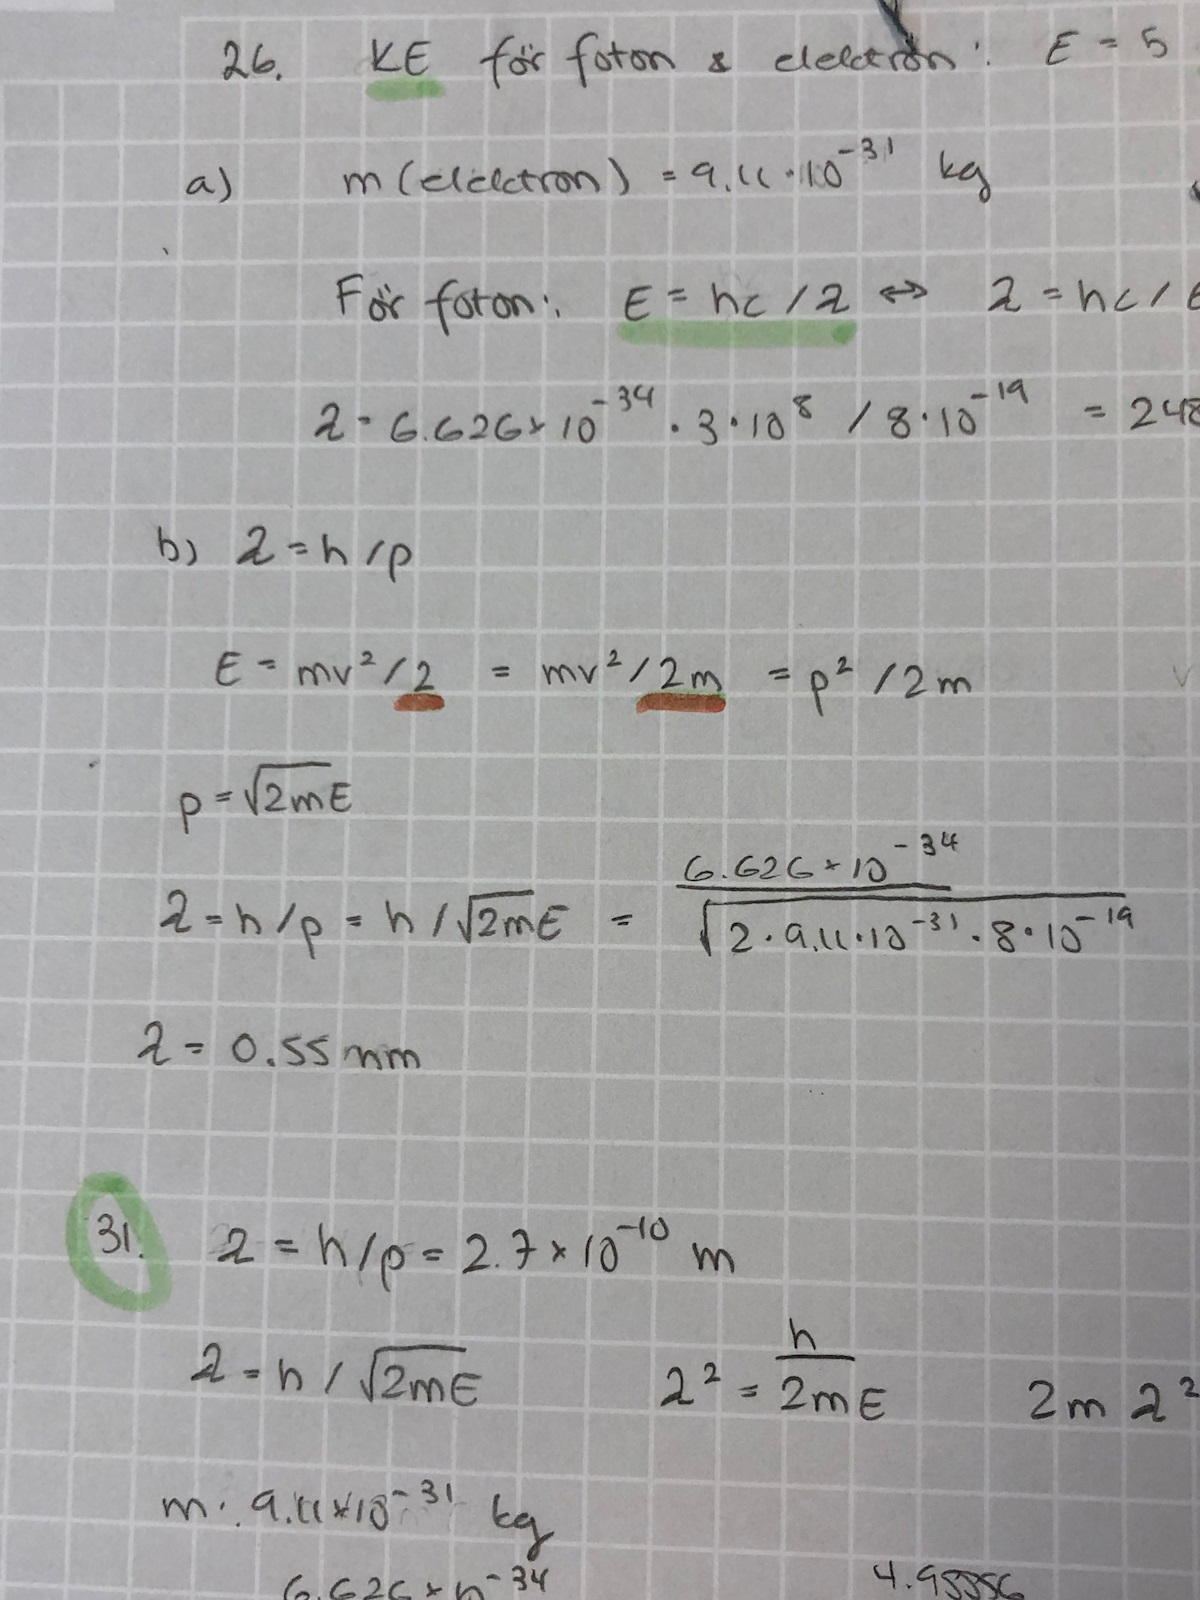 26. KE för foton & elektron: E = 5
a) m (elektron) = 9.11 · 10⁻³¹ kg
För foton: E = hc / λ ⇔ λ = hc / E
λ = 6.626 × 10⁻³⁴ · 3 · 10⁸ / 8 · 10⁻¹⁹ = 248
b) λ = h / p
E = mv² / 2 = mv² / 2m = p² / 2m
p = √2mE
λ = h / p = h / √2mE = 6.626 × 10⁻³⁴ / √2 · 9.11 · 10⁻³¹ · 8 · 10⁻¹⁹
λ = 0.55 nm
31. λ = h / p = 2.7 × 10⁻¹⁰ m
λ = h / √2mE λ² = h / 2mE 2m λ²
m: 9.11 × 10⁻³¹ kg
6.626 × 10⁻³⁴ 4.95556